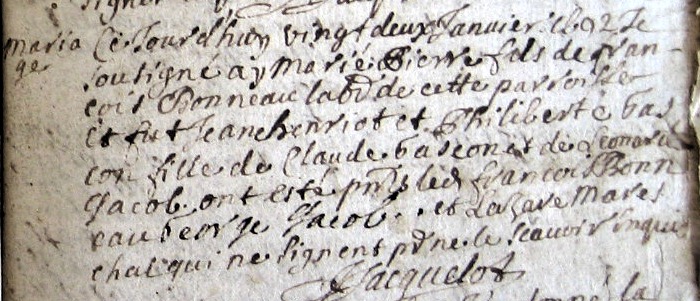 maria Ce Jourdhuy vingt deux Janvier 1692 Je
ge sousigné ay marié Pierre fils de fran-
cois Bonneau lab^r de cette parroisse
et fut Jeanne henriot et Philiberte bas
con fille de Claude bascon et de Leonard
Jacob. ont esté pns led françois Bonn
eau George Jacob. et Lazare Mares
chal qui ne signent pr ne le scavoir enquis
Jacquelot